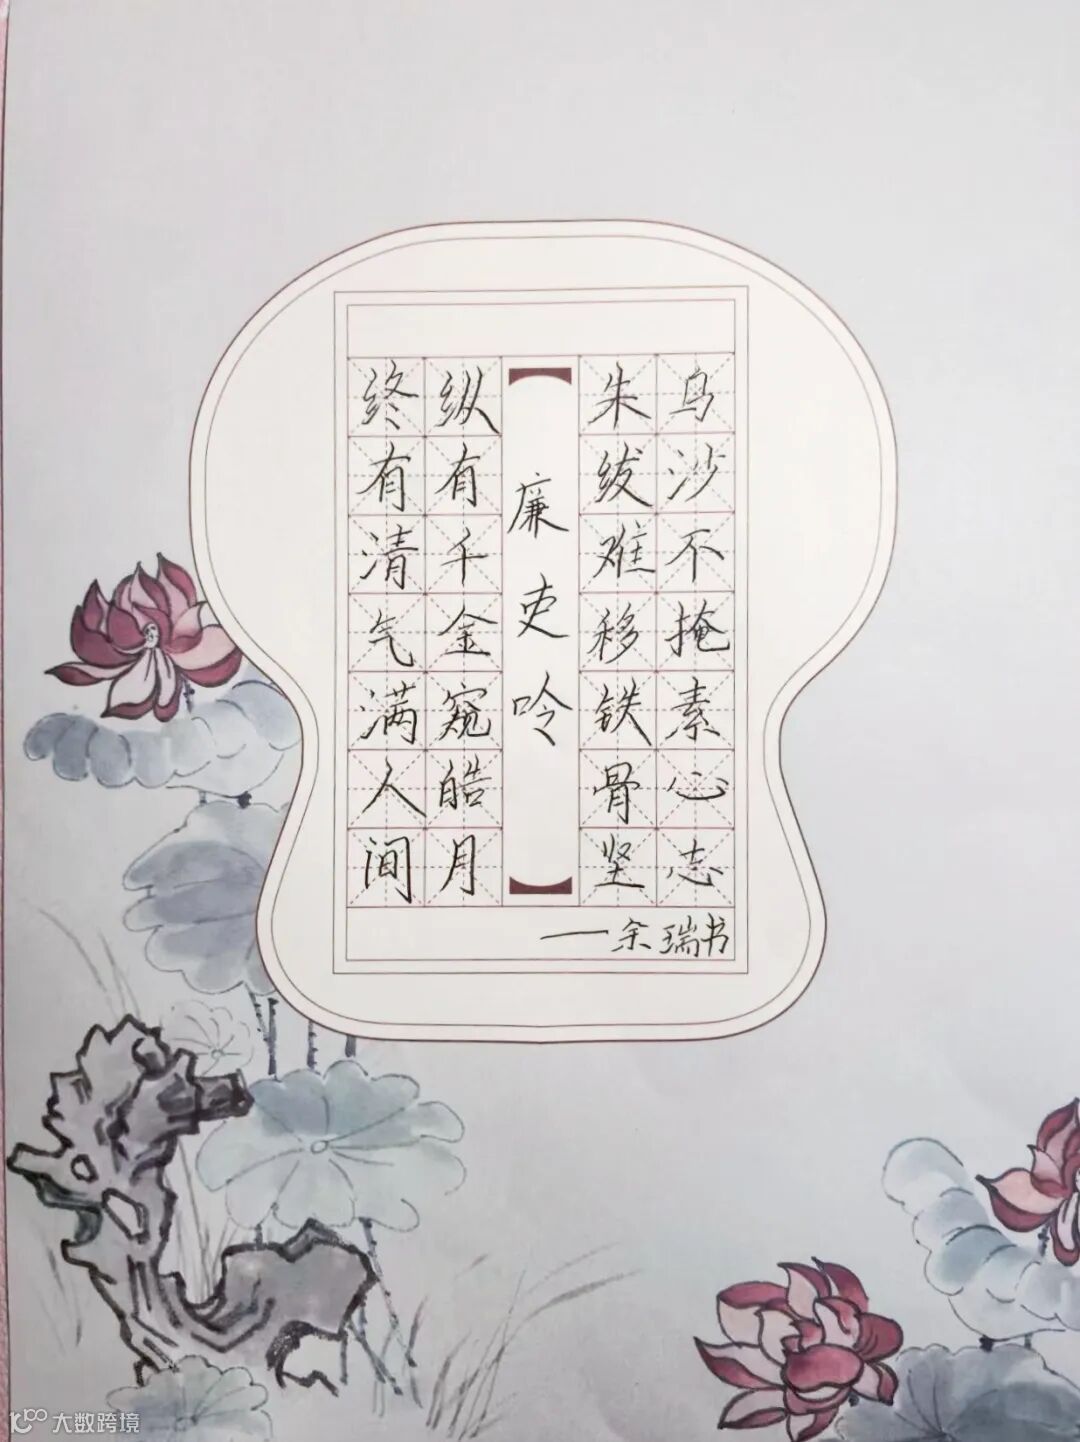 乌沙不掩素心志
朱绂难移铁骨坚
廉吏吟
纵有千金窥皓月
终有清气满人间
——余瑞书
大数跨境